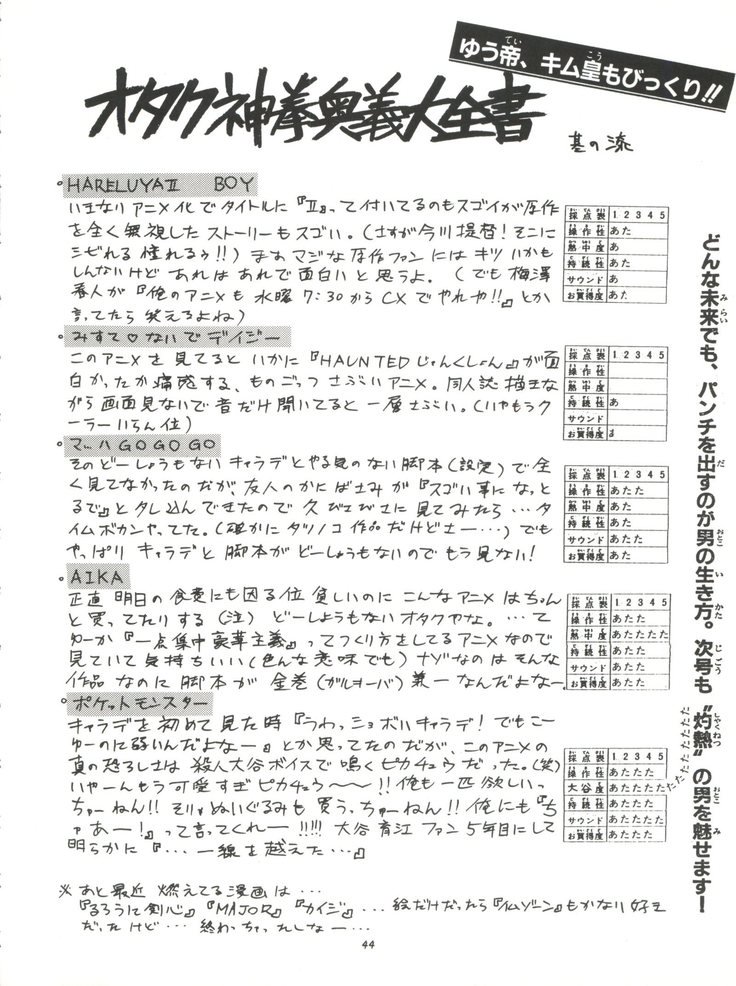 ゆう帝、キム皇もびっくり!!
オタク神拳奥義大全書
基の流
HARELUYAⅡ BOY
いきなりアニメ化でタイトルに『Ⅱ』って付いてるのもスゴイが原作
を全く無視したストーリーもスゴい。(さすが今川提督!そこに
シビれる憧れるゥ!!) まあ マジな原作ファンにはキツいかも
しんないけど あれはあれで面白いと思うよ。(でも梅澤
春人が『俺のアニメも水曜7:30からCXでやれや!!』とか
言ってたら笑えるよね)
採点表 1 2 3 4 5
操作性 あた
熱中度 あ
持続性 あた
サウンド あ
お買得度 あた
みすて♡ないでデイジー
このアニメを見てると いかに『HAUNTEDじゃんくしょん』が面
白かったか痛感する、ものごっつ さぶいアニメ。同人誌描きな
がら画面見ないで音だけ聞いてると一層さぶい。(いやもうク
ーラーいらん位)
採点表 1 2 3 4 5
操作性
熱中度
持続性 あ
サウンド
お買得度
マッハGOGOGO
そのどーしょうもないキャラデとやる気のない脚本(設定)で全
く見てなかったのだが、友人のかにばさみが『スゴい事になっと
るで』とタレ込んできたので久びさびさに見てみたら…タ
イムボカンやってた。(確かにタツノコ作品だけどさー…)でも
やっぱりキャラデと脚本がどーしょうもないのでもう見ない!
採点表 1 2 3 4 5
操作性 あたた
熱中度 あた
持続性 あた
サウンド あた
お買得度 あた
AIKA
正直明日の食費にも困る位貧しいのに こんなアニメはちゃん
と買ってたりする(注) どーしようもないオタクやな。…て
ゆーか『一点集中豪華主義』ってつくり方をしてるアニメなので
見ていて気持ちいい(色んな意味でも)ナゾなのはそんな
作品なのに脚本が全巻(ガルキーバ)兼一なんだよなー
採点表 1 2 3 4 5
操作性 あたた
熱中度 あたたたた
持続性 あたた
サウンド あた
お買得度 あたた
ポケットモンスター
キャラデを初めて見た時『うわっショボいキャラデ!でもこー
ゆーのに弱いんだよなー』とか思ってたのだが、このアニメの
真の恐ろしさは殺人大谷ボイスで鳴くピカチュウだった。(笑)
いやーんもう可愛すぎピカチュウ〜〜!!俺も一匹欲しいっ
ちゅーねん!!そりゃぬいぐるみも買うっちゅーねん!!俺にも『ち
ゃあー!』って言ってくれー!!!!! 大谷育江ファン5年目にして
明らかに『…一線を越えた…』
採点表 1 2 3 4 5
操作性 あたたた
大谷度 あたたたたたたたたたたたたた
持続性 あたたた
サウンド あたたた
お買得度 あたたたた
※あと最近燃えてる漫画は…
『るろうに剣心』『MAJOR』『カイジ』…絵だけだったら『仏ゾーン』もかなり好き
だったけど…終わっちゃったしなー…
どんな未来でも、パンチを出すのが男の生き方。次号も“灼熱”の男を魅せます!
44